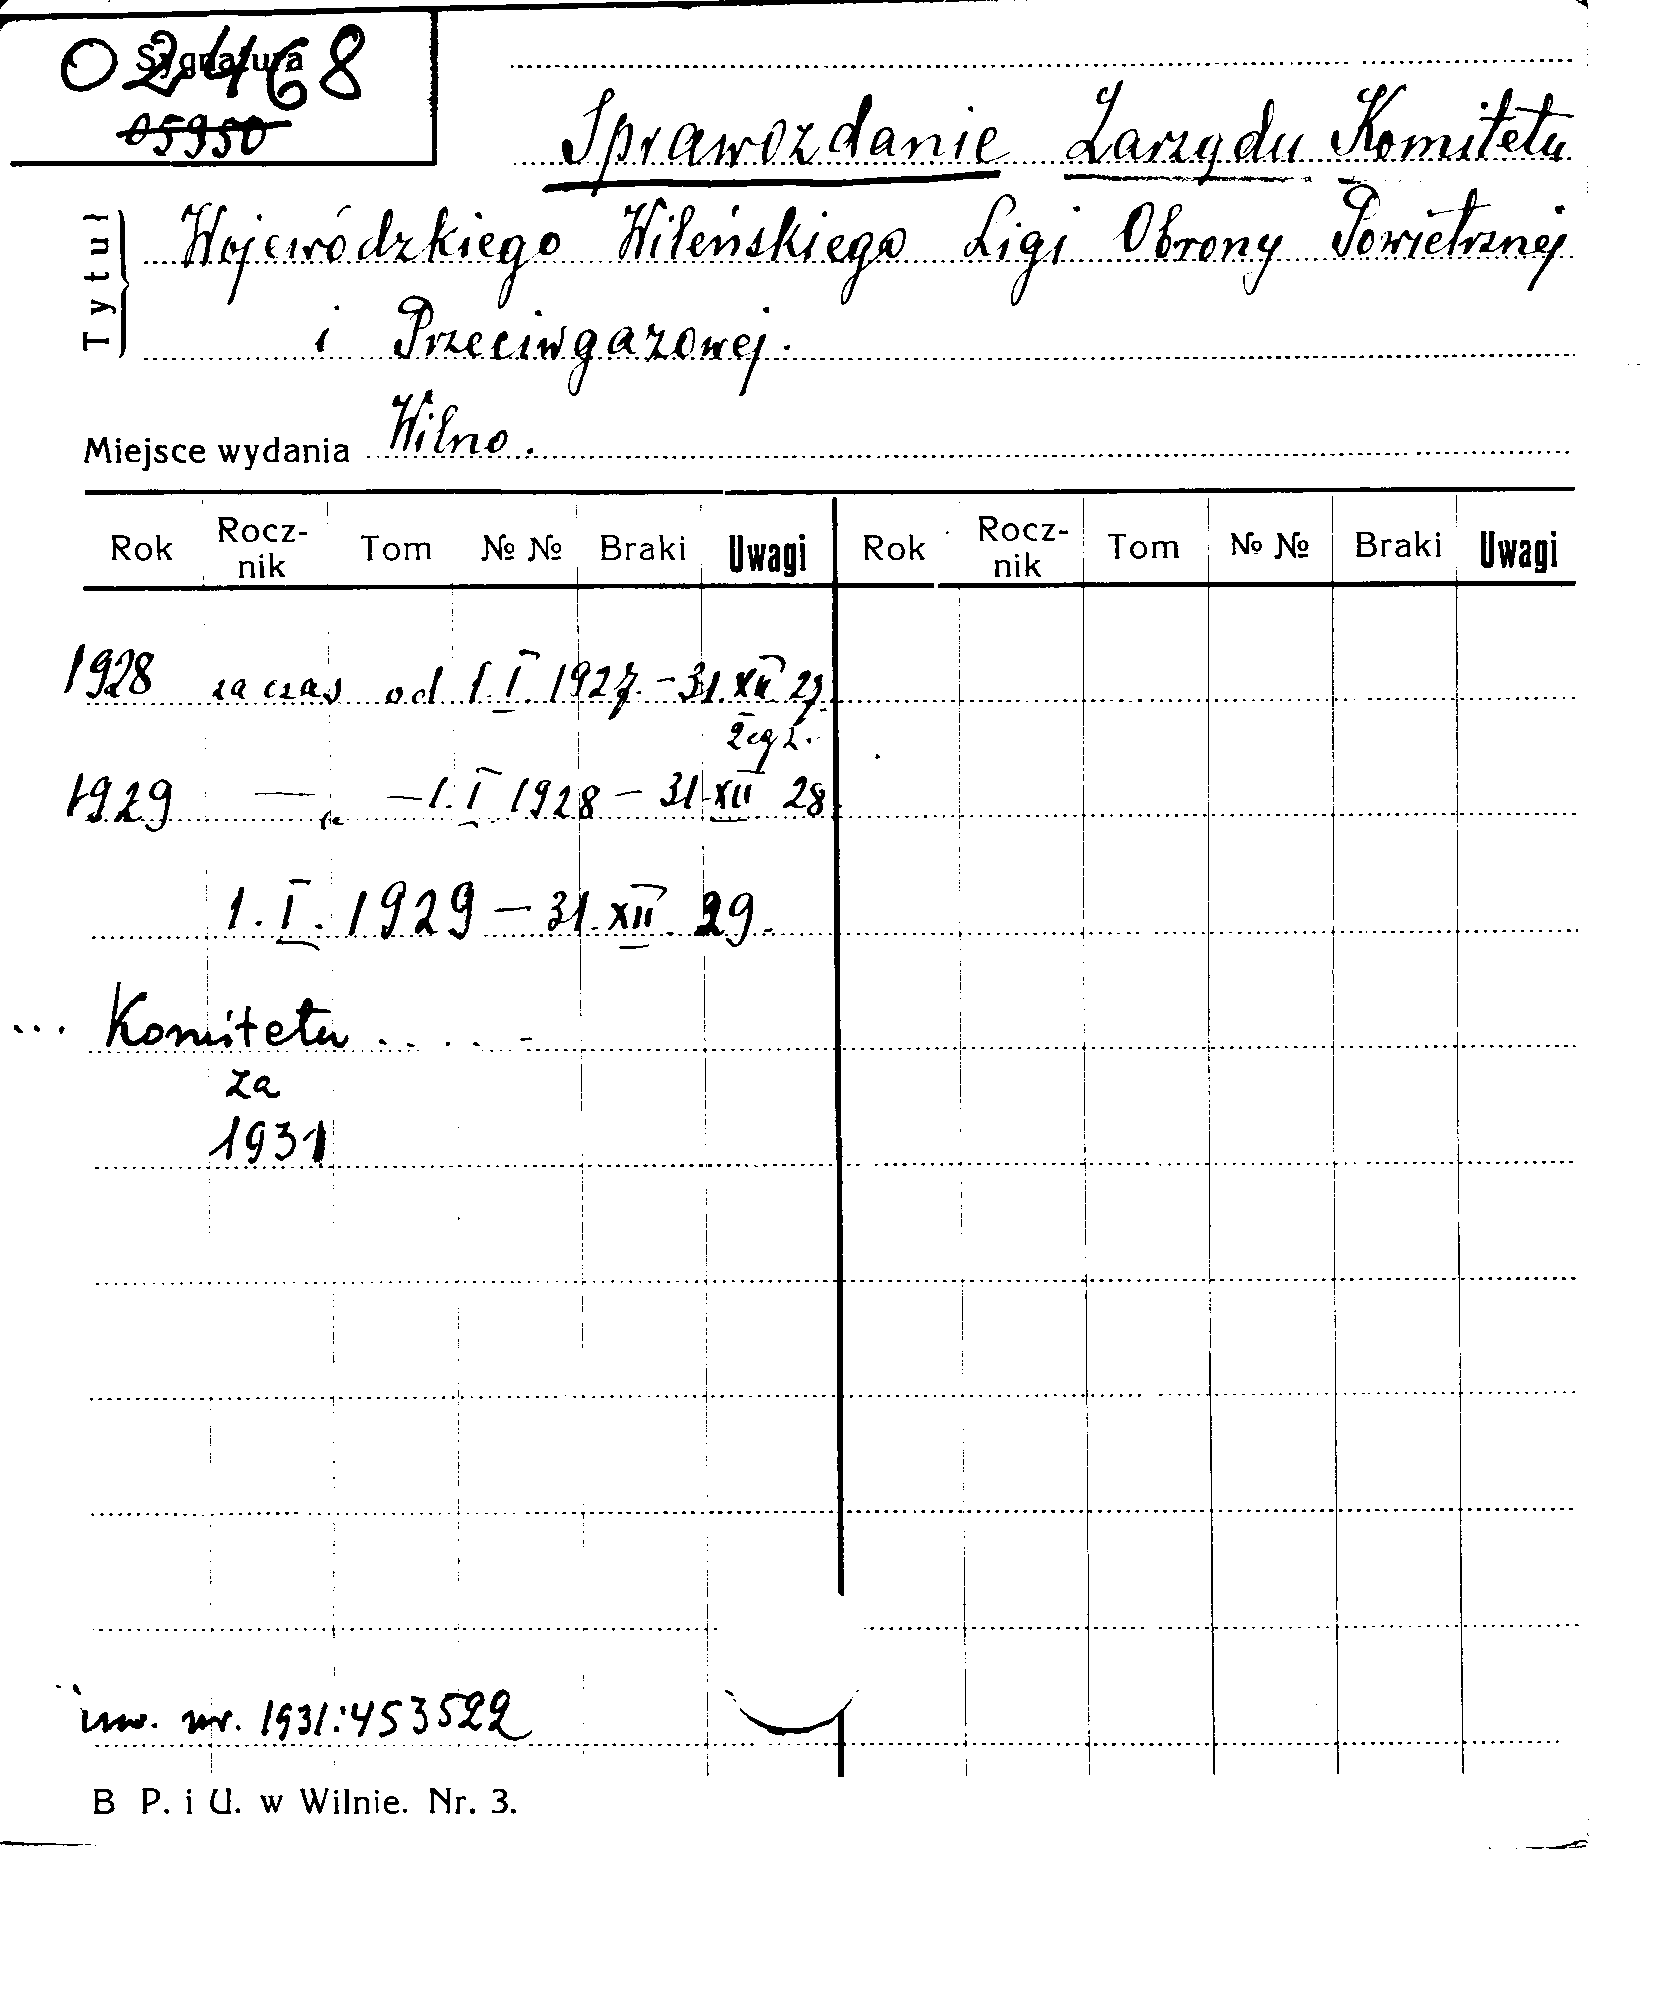 Sygnatura
02468
05950
Sprawozdanie Zarządu Komitetu
Tytuł
Wojewódzkiego Wileńskiego Ligi Obrony Powietrznej
i Przeciwgazowej.
Miejsce wydania Wilno.
Rok Rocz-nik Tom № № Braki Uwagi Rok Rocz-nik Tom № № Braki Uwagi
1928 za czas od 1.I.1927.-31.XII 27.
2 egz.
1929 — „ —1.I 1928 – 31 XII 28
1.I.1929 – 31.XII.29.
... Komitetu . . . . -
za
1931
inw. nr. 1931:453522
B P. i U. w Wilnie. Nr. 3.